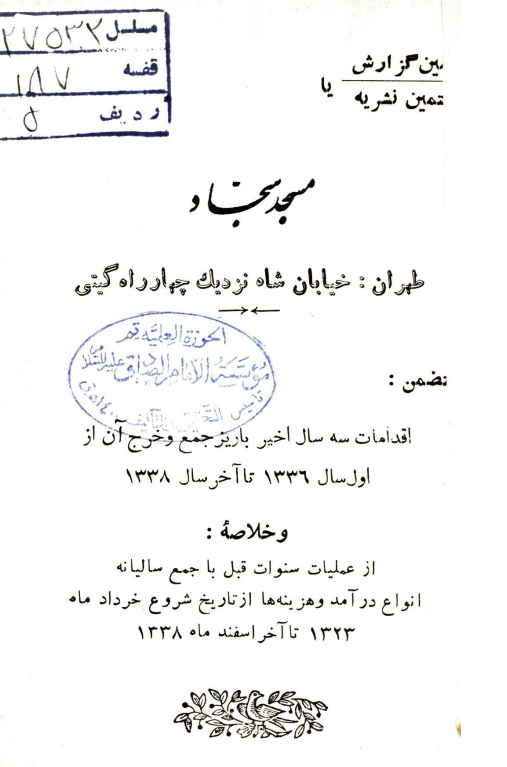 مسلسل ۲۷۵۳۲
قفسه ۱۸۷
ردیف
گزارش
یا
نشریه
مسجد سجاد
طهران : خیابان شاه نزدیك چهارراه گیتی
الحوزة العلمیة قم
مؤسسة الامام الصادق علیه السلام
اقدامات سه سال اخیر باریز جمع وخرج آن از
اول سال ۱۳۳۶ تا آخر سال ۱۳۳۸
وخلاصهٔ :
از عملیات سنوات قبل با جمع سالیانه
انواع درآمد وهزینه‌ها از تاریخ شروع خرداد ماه
۱۳۲۳ تا آخر اسفند ماه ۱۳۳۸